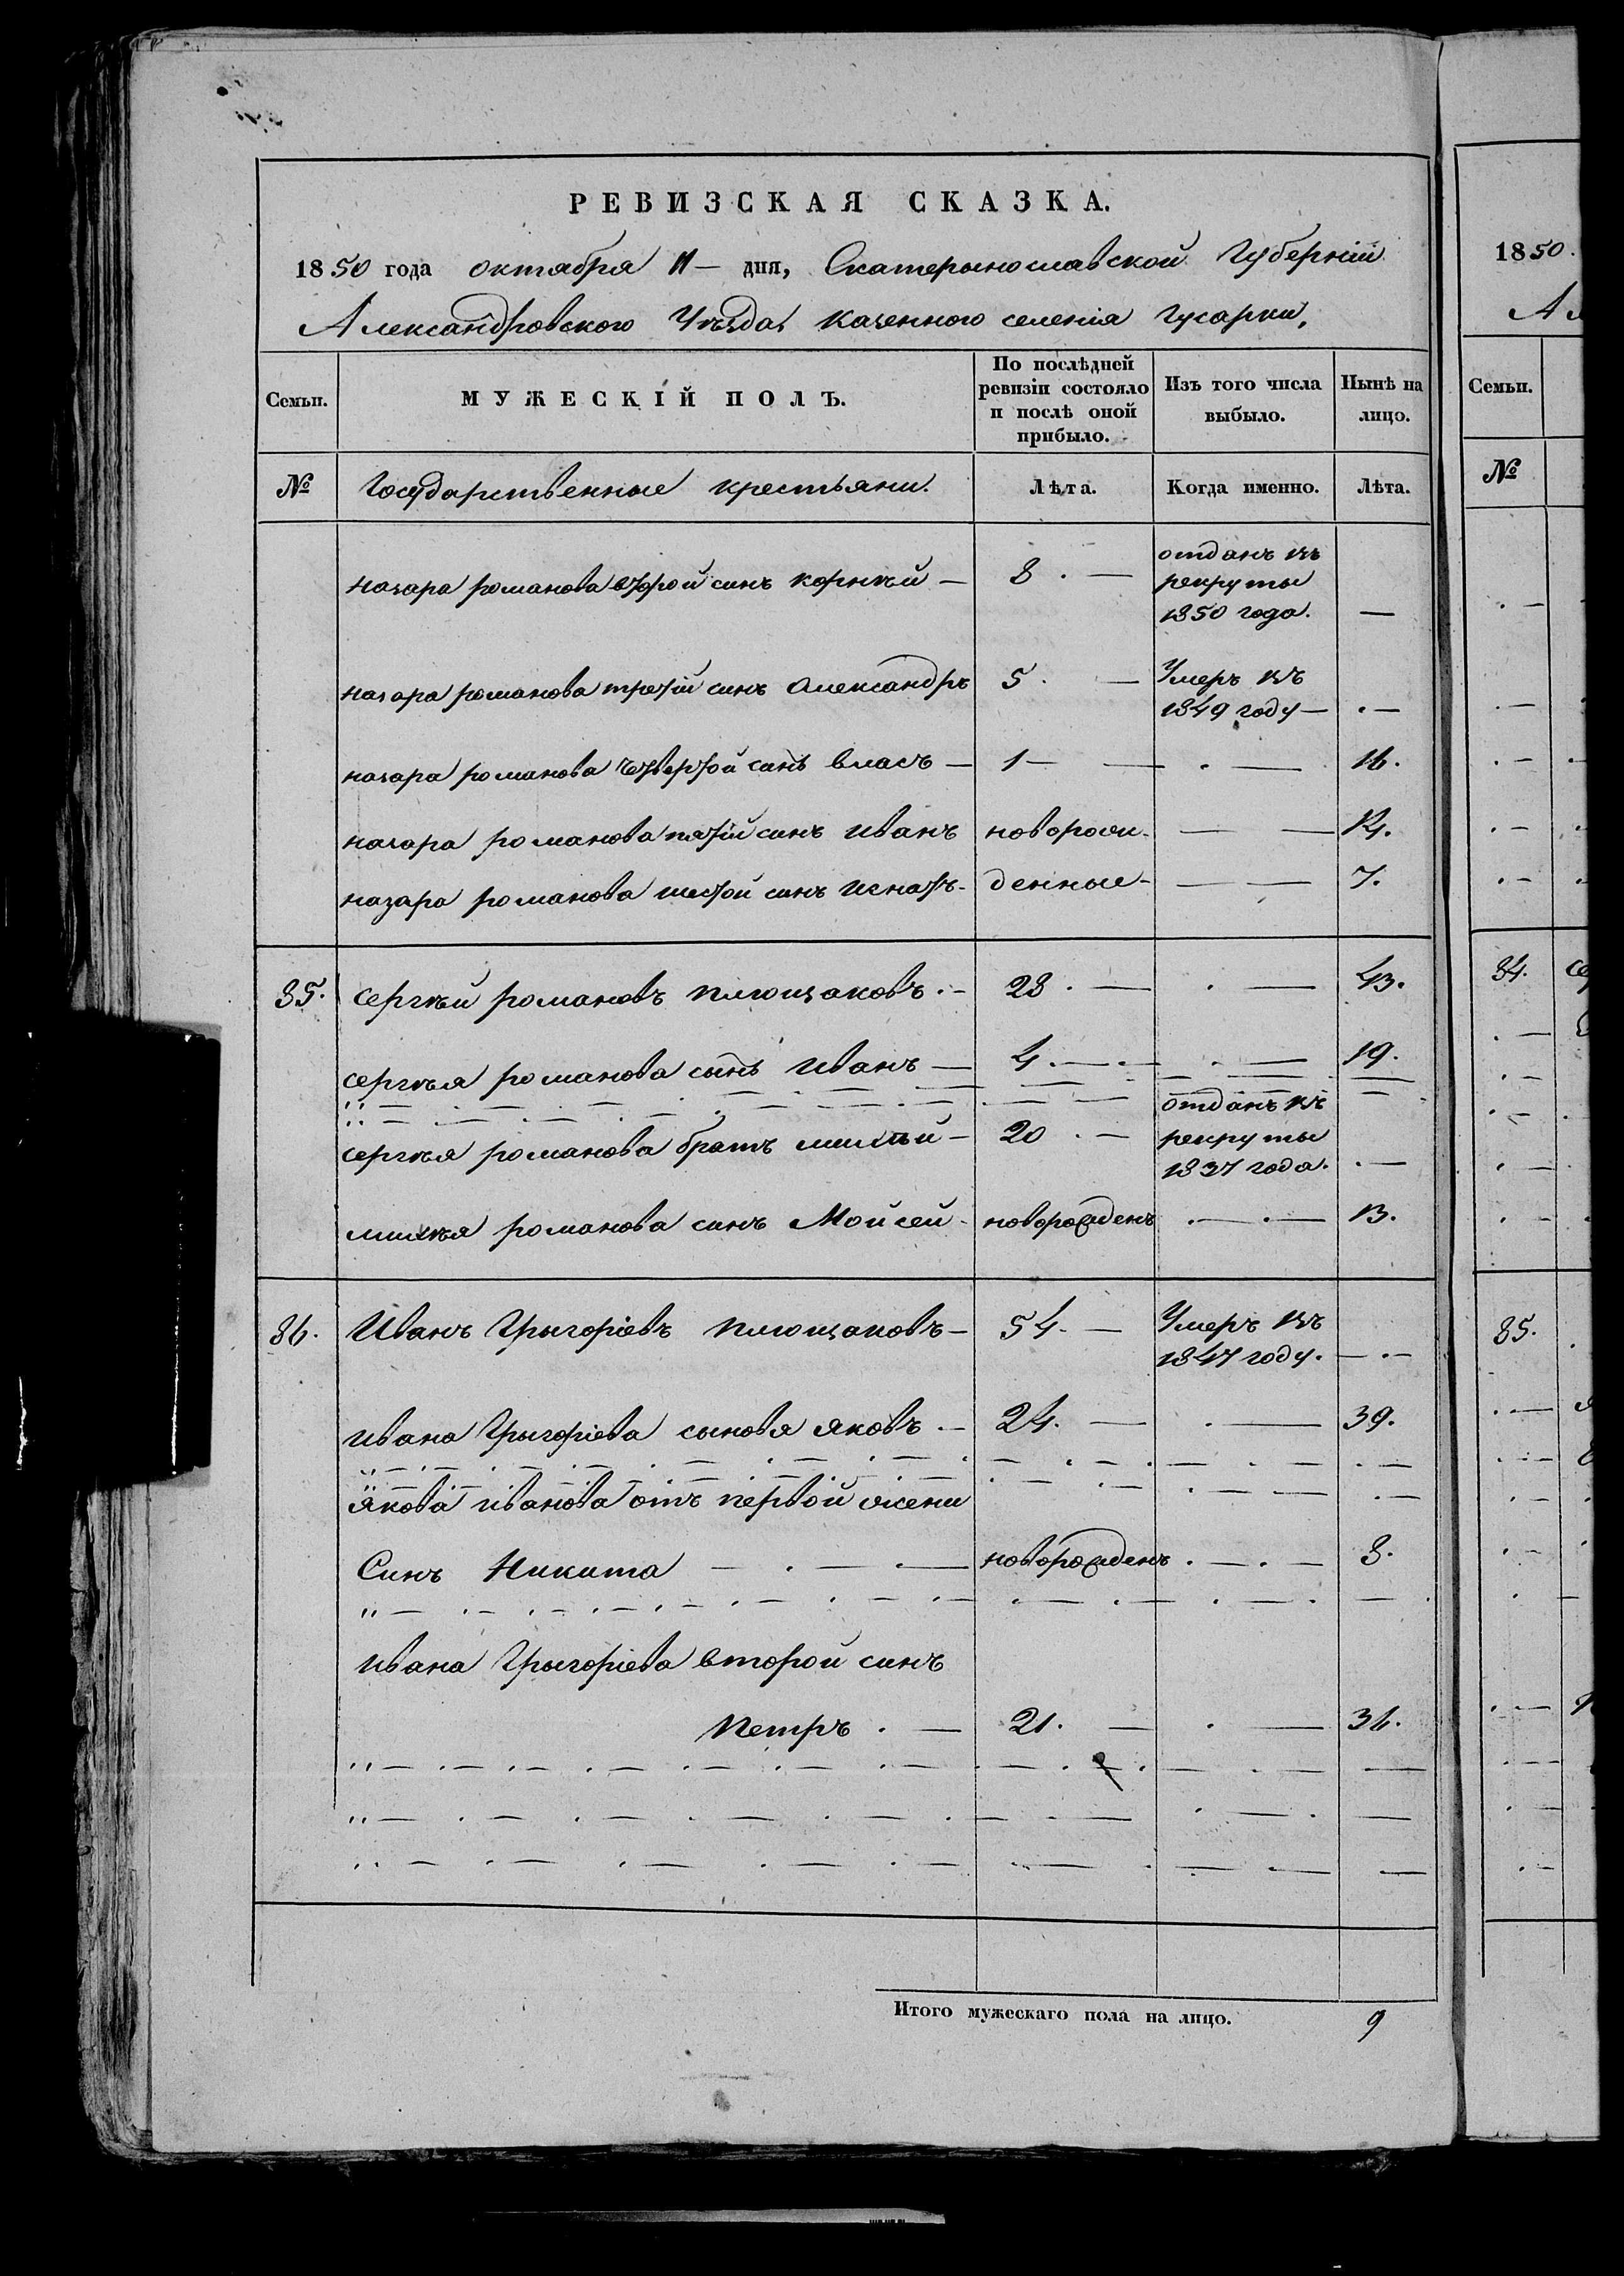 РЕВИЗСКАЯ СКАЗКА.
1850 года октября 11 — дня, Екатерынославской Губерніи
Александровского Уѣзда, казенного селенія Гусарки,
Семьи. МУЖЕСКІЙ ПОЛЪ. По послѣдней ревизіи состояло и послѣ оной прибыло. Изъ того числа выбыло. Нынѣ на лицо.
№ Государственные крестьяни. Лѣта. Когда именно. Лѣта.
назара романова второй синъ корнѣй — 8 . — отданъ въ рекруты 1850 года. —
назара романова третій синъ Александръ 5 . — Умеръ въ 1849 году — . —
назара романова четвертой синъ власъ — 1 — — . — 16.
назара романова пятій синъ иванъ новорож- — — 14.
назара романова шестой синъ игнатъ - денные - — — 7.
85. сергѣй романовъ плющаковъ . — 28 . — . — 43.
сергѣя романова сынъ иванъ — 4 . — . — . — 19.
сергѣя романова братъ михѣй — 20 . — отданъ въ рекруты 1837 года. . —
михѣя романова синъ Мойсей - новорожденъ . — . — 13.
86. Иванъ Грыгоріевъ плющаковъ — 54 . — Умеръ въ 1847 году. — . —
ивана Грыгоріева сыновя яковъ . — 24. — . — 39.
якова иванова отъ первой жени
Синъ Никита — . — . — новорожденъ . — . — 8.
ивана Грыгоріева второй синъ
петръ . — 21. — . — 36.
Итого мужескаго пола на лицо. 9
1850.
Семьи.
№
84.
85.